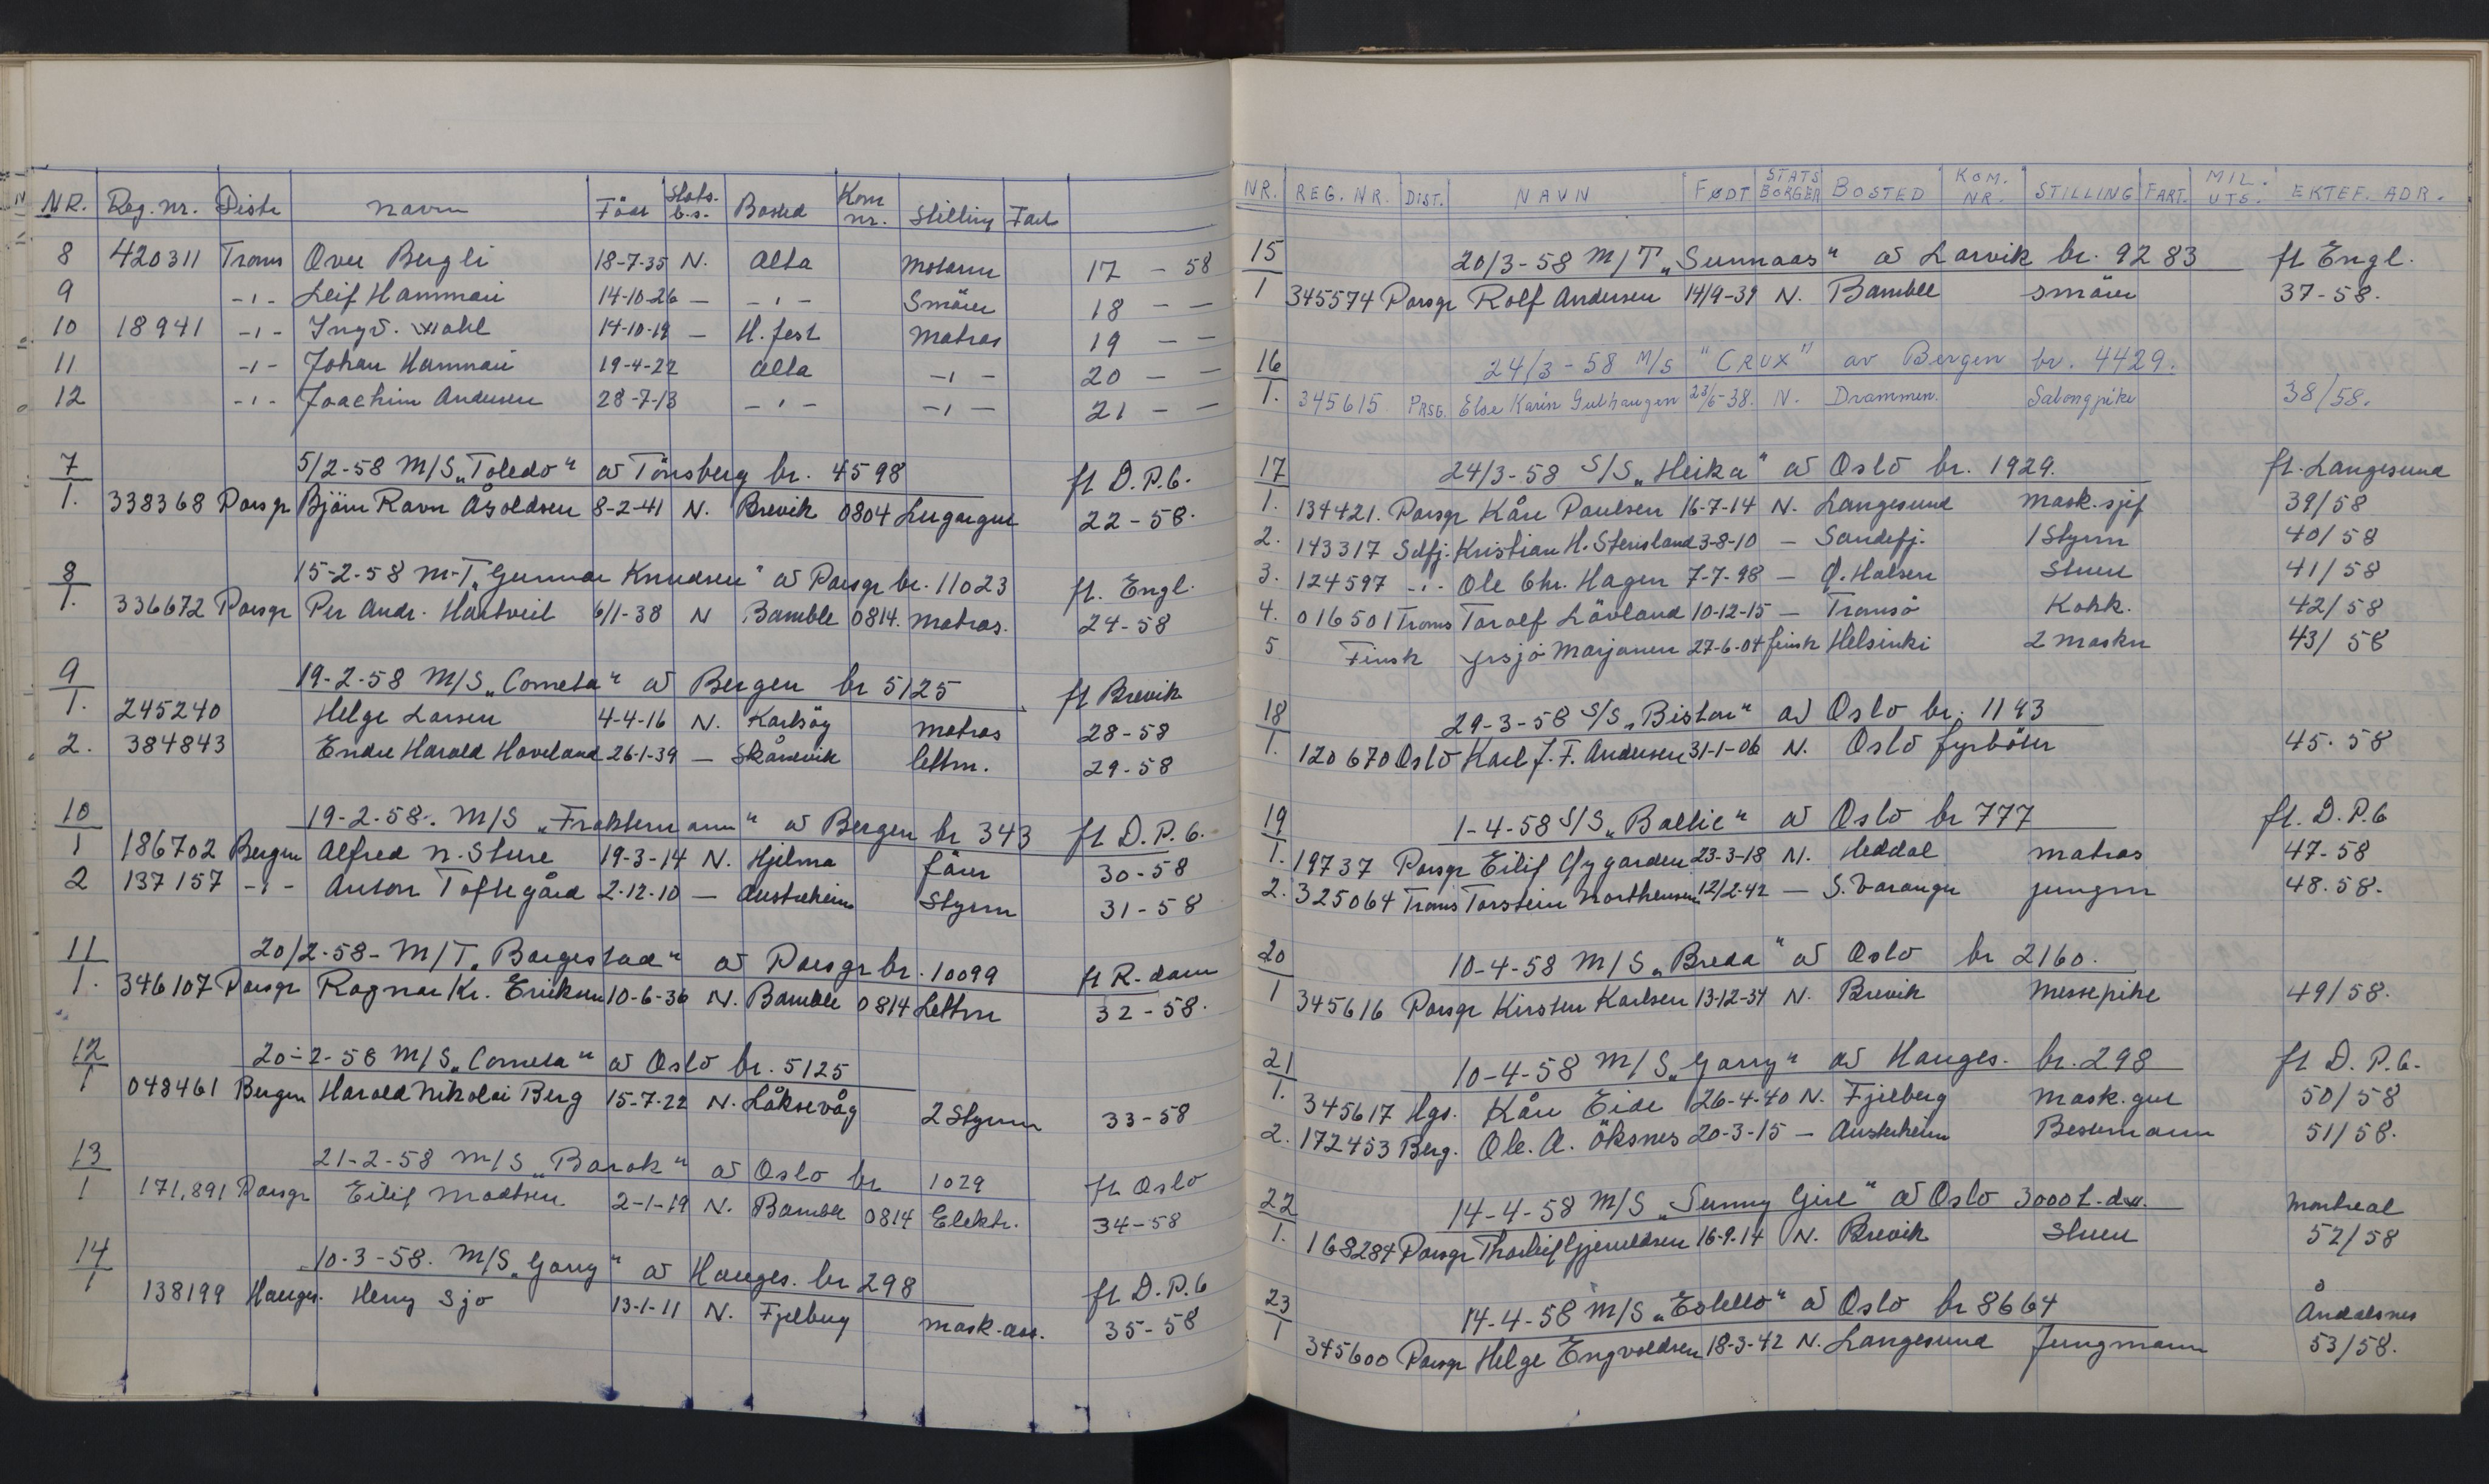 NR. Reg. nr. Distr navn Född Stats. b.s. Bosted Kom nr. Stilling Fart
8 420311 Troms Over Bergli 18-7-35 N. Alta motorm 17 - 58
9 -"- Leif Hammari 14-10-26 - -"- Smörer 18 - -
10 18941 -"- Ingv. Wahl 14-10-19 - H.fest matros 19 - -
11 -"- Johan Hammari 19-4-22 Alta -"- 20 - -
12 -"- Joachim Andersen 28-7-13 -"- -"- 21 - -
7 5/2-58 M/S „Toledo" av Tönsberg br. 4598 ft D.P.G.
1. 338368 Porsgr Björn Ravn Åsoldsen 8-2-41 N. Brevik 0804 Lugargut 22-58.
8 15-2-58 M-T „Gunnar Knudsen" av Porsgr br. 11023 ft. Engl.
1. 336672 Porsgr Per Andr. Hartveit 6/1-38 N Bamble 0814. matros. 24-58
9 19-2-58 M/S „Cometa" av Bergen br 5125 ft Brevik
1. 245240 Helge Larsen 4-4-16 N. Karlsöy matros 28-58
2. 384843 Endre Harald Haveland 26-1-39 - Skånevik lettm. 29-58
10 19-2-58. M/S „Fraktemann" av Bergen br 343 ft D.P.G.
1 186702 Bergen Alfred N. Sture 19-3-14 N. Hjelma förer 30-58
2 137157 -"- Anton Toftegård 2-12-10 - Austreheim Styrm 31-58
11 20/2-58- M/T „Borgestad" av Porsgr br. 10099 ft R-dam
1. 346107 Porsgr Ragnar Kr. Eriksen 10-6-36 N. Bamble 0814 Lettm 32-58.
12 20-2-58 M/S „Cometa" av Oslo br. 5125
1 048461 Bergen Harald Nikolai Berg 15-7-22 N. Låksevåg 2 Styrm 33-58
13 21-2-58 M/S „Barok" av Oslo br 1029 ft Oslo
1 171.891 Porsgr Eilif Madtsen 2-1-19 N. Bamble 0814 Elektr. 34-58
14 10-3-58. M/S „Garry" av Hauges. br 298 ft D.P.G
1 138199 Hauges. Henry Sjo 13-1-11 N. Fjelberg mask-ass. 35-58
NR. REG. NR. DIST. NAVN FØDT STATS BORGER BOSTED KOM. NR. STILLING FART. MIL. UTS. EKTEF. ADR.
15 20/3-58 M/T „Sunnaas" av Larvik br. 9283 ft Engl.
1 345574 Porsgr Rolf Andersen 14/9-39 N. Bamble smörer 37-58.
16 24/3-58 M/S "CRUX" av Bergen br. 4429.
1. 345615 PRSG. Else Karin Gulhaugen 23/6-38. N. Drammen. Salongpike 38/58.
17 24/3-58 S/S „Heika" av Oslo br. 1929. ft. Langesund
1. 134421. Porsgr Kåre Paulsen 16-7-14 N. Langesund mask.sjef 39/58
2. 143317 Sdfj. Kristian H. Stensland 3-8-10 - Sandefj. 1 Styrm 40/58
3. 124597 -"- Ole Chr. Hagen 7-7-98 - Q. Halsen Stuert 41/58
4. 016501 Troms Toralf Lövland 10-12-15 - Tromsö Kokk. 42/58
5 Finsk Yrsjö Marjanen 27-6-04 finsk Helsinki 2 maskn 43/58
18 29-3-58 S/S „Bistar" av Oslo br. 1143
1. 120670 Oslo Karl J. F. Andersen 31-1-06 N. Oslo fyrböter 45.58
19 1-4-58 S/S „Baltic" av Oslo br 777 ft. D.P.G
1. 19737 Porsgr Eilif Nygarden 23-3-18 N. Heddal matros 47-58
2. 325064 Troms Torstein Morthensen 12/2-42 - S. Varanger jungm 48.58.
20 10-4-58 M/S „Breda" av Oslo br 2160.
1 345616 Porsgr Kirsten Karlsen 13-12-34 N. Brevik Messepike 49/58.
21 10-4-58 M/S „Garry" av Hauges. br. 298 ft D.P.G.
1. 345617 Hgs. Kåre Eide 26-4-40 N. Fjelberg mask.gut 50/58
2. 172453 Berg. Ole. A. Öksnes 20-3-15 - Austerheim Bestmann 51/58.
22 14-4-58 M/S „Sunny Girl" av Oslo 3000 t.d.w. Montreal
1. 168284 Porsgr Thorleif Gjeruldsen 16-9-14 N. Brevik Stuert 52/58
23 14-4-58 M/S „Estello" av Oslo br 8664 Åndalsnes
1 345600 Porsgr Helge Engvoldsen 18-3-42 N. Langesund Jungmann 53/58.